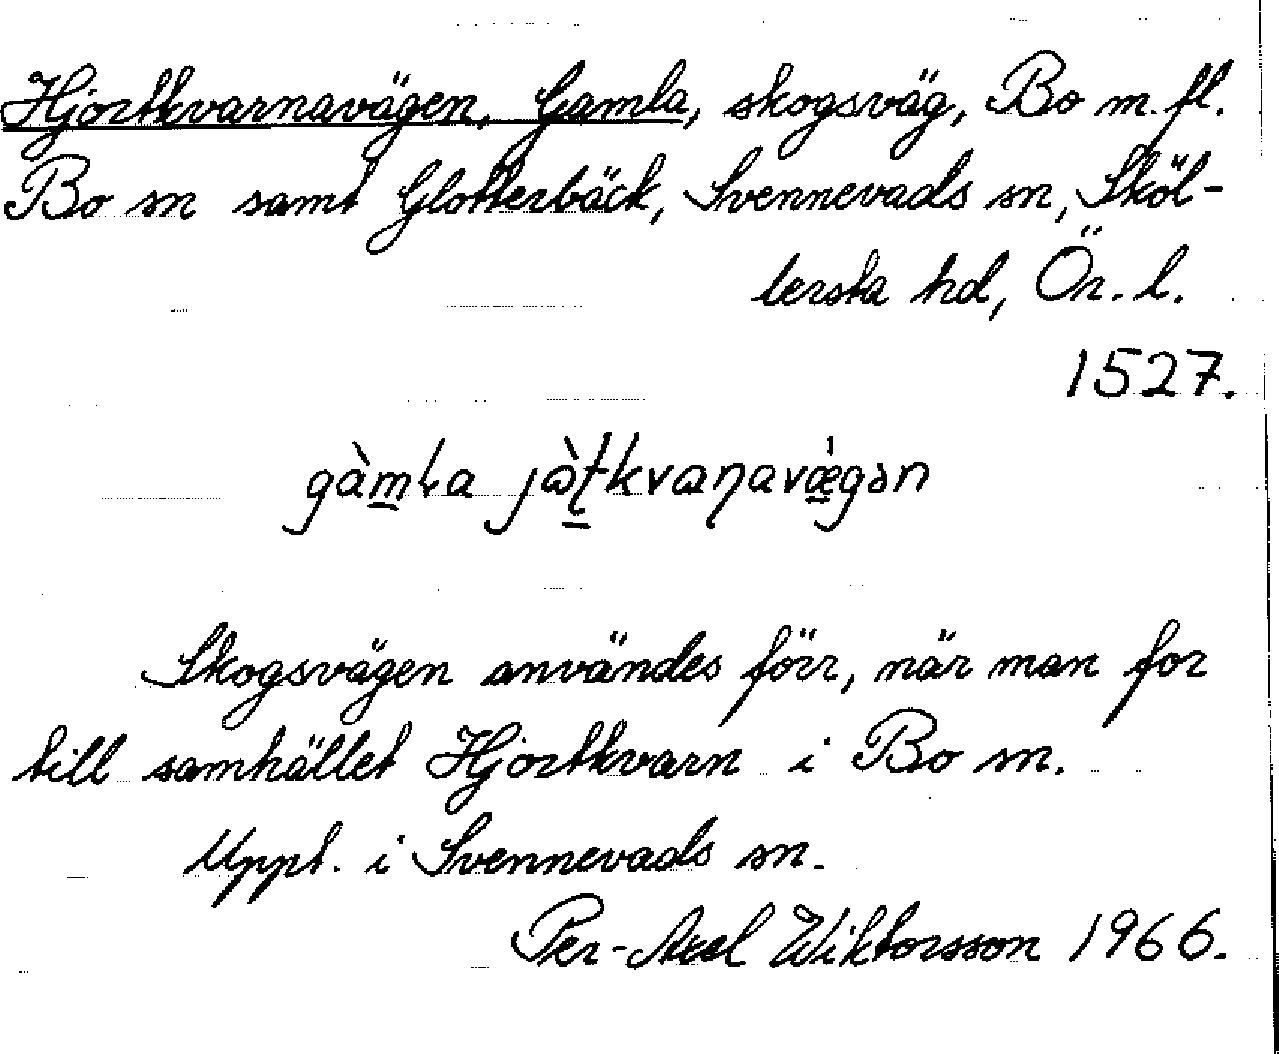 Hjortkvarnavägen, Gamla, skogsväg, Bo m. fl.
Bo sn samt Glotterbäck, Svennevads sn, Sköl-
lersta hd, Ör. l.
1527.
gàm̲ɫa jɷ̀ʈ̲kvaɳavæ̲̀gən
Skogsvägen användes förr, när man for
till samhället Hjortkvarn i Bo sn.
Uppt. i Svennevads sn.
Per-Axel Wiktorsson 1966.